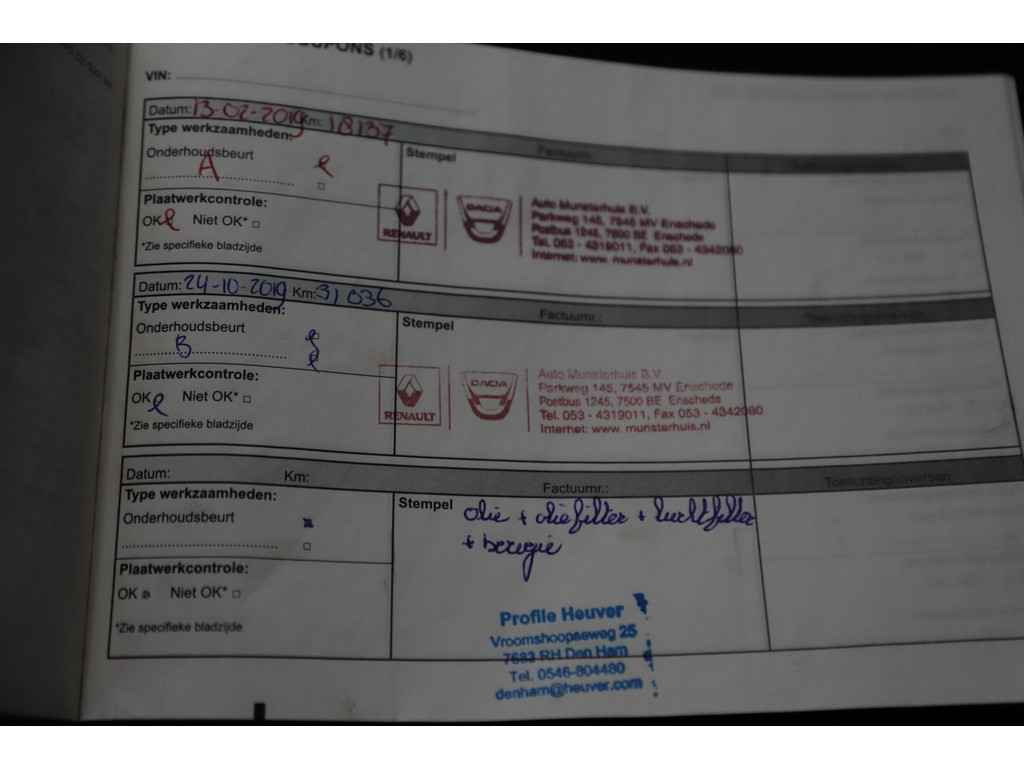 COUPONS (1/6)
VIN:
Datum: 13-02-2019 Km: 18137
Type werkzaamheden:
Onderhoudsbeurt
A
Plaatwerkcontrole:
OK Niet OK*
*Zie specifieke bladzijde
Stempel
Factuurnr.:
RENAULT
DACIA
Auto Munsterhuis B.V.
Parkweg 145, 7545 MV Enschede
Postbus 1245, 7500 BE Enschede
Tel. 053 - 4319011, Fax 053 - 4342080
Internet: www. munsterhuis.nl
Datum: 24-10-2019 Km: 31036
Type werkzaamheden:
Onderhoudsbeurt
B
Plaatwerkcontrole:
OK Niet OK*
*Zie specifieke bladzijde
Stempel
Factuurnr.:
RENAULT
DACIA
Auto Munsterhuis B.V.
Parkweg 145, 7545 MV Enschede
Postbus 1245, 7500 BE Enschede
Tel. 053 - 4319011, Fax 053 - 4342080
Internet: www. munsterhuis.nl
Datum: Km:
Type werkzaamheden:
Onderhoudsbeurt
Plaatwerkcontrole:
OK Niet OK*
*Zie specifieke bladzijde
Stempel
Factuurnr.:
olie + oliefilter + luchtfilter
Profile Heuver
Vroomshoopseweg 25
7683 RH Den Ham
Tel. 0546-804480
denham@heuver.com